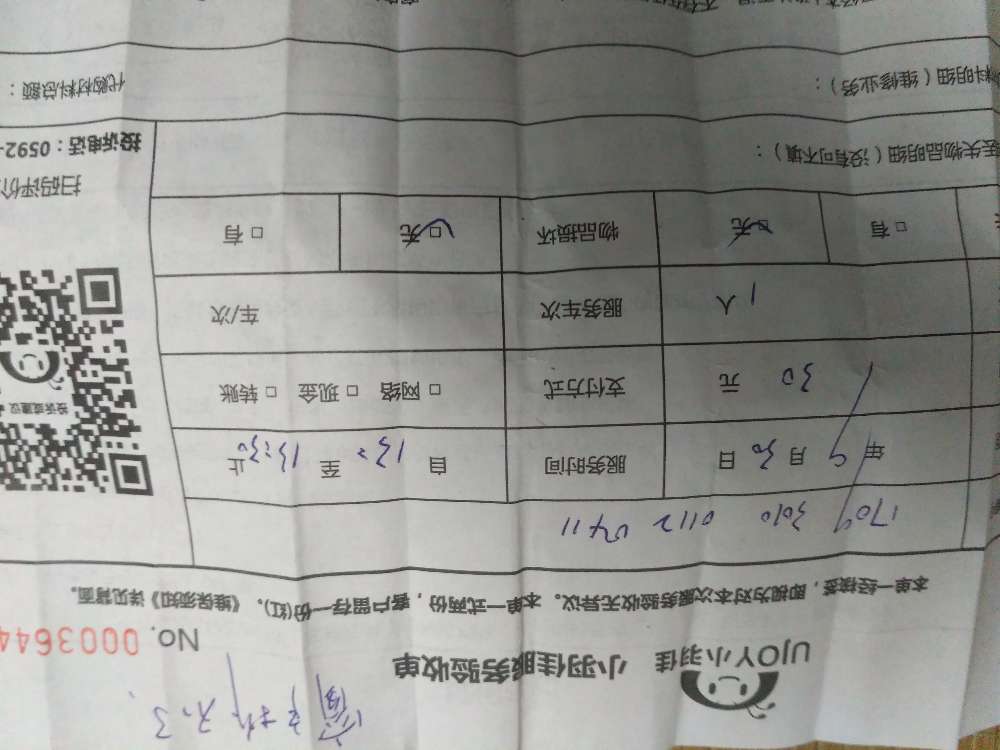 UJOY小羽佳 小羽佳服务验收单
No. 0003644
本单一经核签，即视为对本次服务验收无异议。本单一式两份，客户留存一份(红)。《维保须知》详见背面。
1709 3010 0112 0411
年 9 月 30 日 服务时间 自 13: 至 13:30 止
30 元 支付方式 □ 网络 □ 现金 □ 转账
1 人 服务车次 车/次
□ 有 □ 无 物品损坏 □ 无 □ 有
丢失物品明细（没有可不填）：
料明细（维修业务）： 代购材料总额：
投诉或建议
扫码评价
投诉电话：0592-